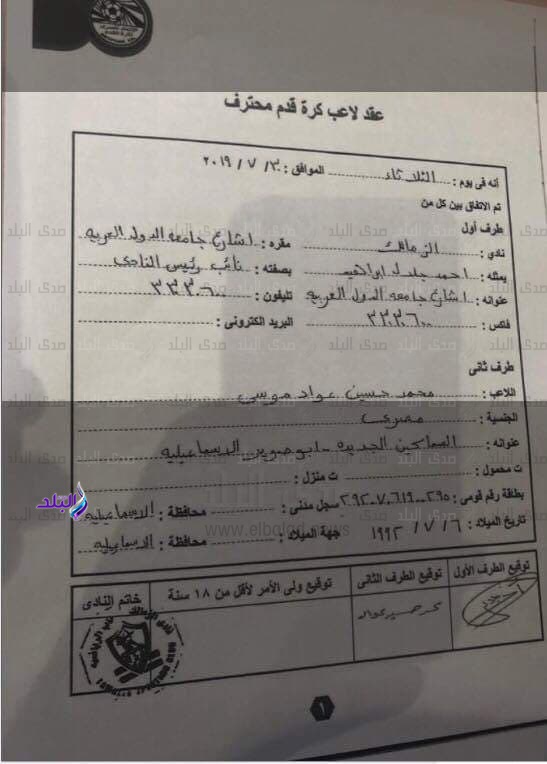 عقد لاعب كرة قدم محترف
أنه فى يوم : الثلاثاء الموافق : ٣٠ / ٧ / ٢٠١٩
تم الاتفاق بين كل من
طرف أول
نادى : الزمالك مقره : ١ شارع جامعه الدول العربيه
يمثله : احمد جلال ابراهيم بصفته : نائب رئيس النادى
عنوانه : ١ شارع جامعه الدول العربيه تليفون :
فاكس : البريد الكترونى :
طرف ثانى
اللاعب : محمد حسين عواد موسى
الجنسية : مصرى
عنوانه : السماكين الجديده - ابو صوير الاسماعيليه
ت محمول : ت منزل :
بطاقة رقم قومى : سجل مدنى : محافظة : الاسماعيليه
تاريخ الميلاد : ٦ / ٧ / ١٩٩٢ جهة الميلاد : محافظة : الاسماعيليه
توقيع الطرف الأول توقيع الطرف الثانى توقيع ولى الأمر لأقل من ١٨ سنة خاتم النادى
محمد حسين عواد
١
صدى البلد
www.elbalad.news